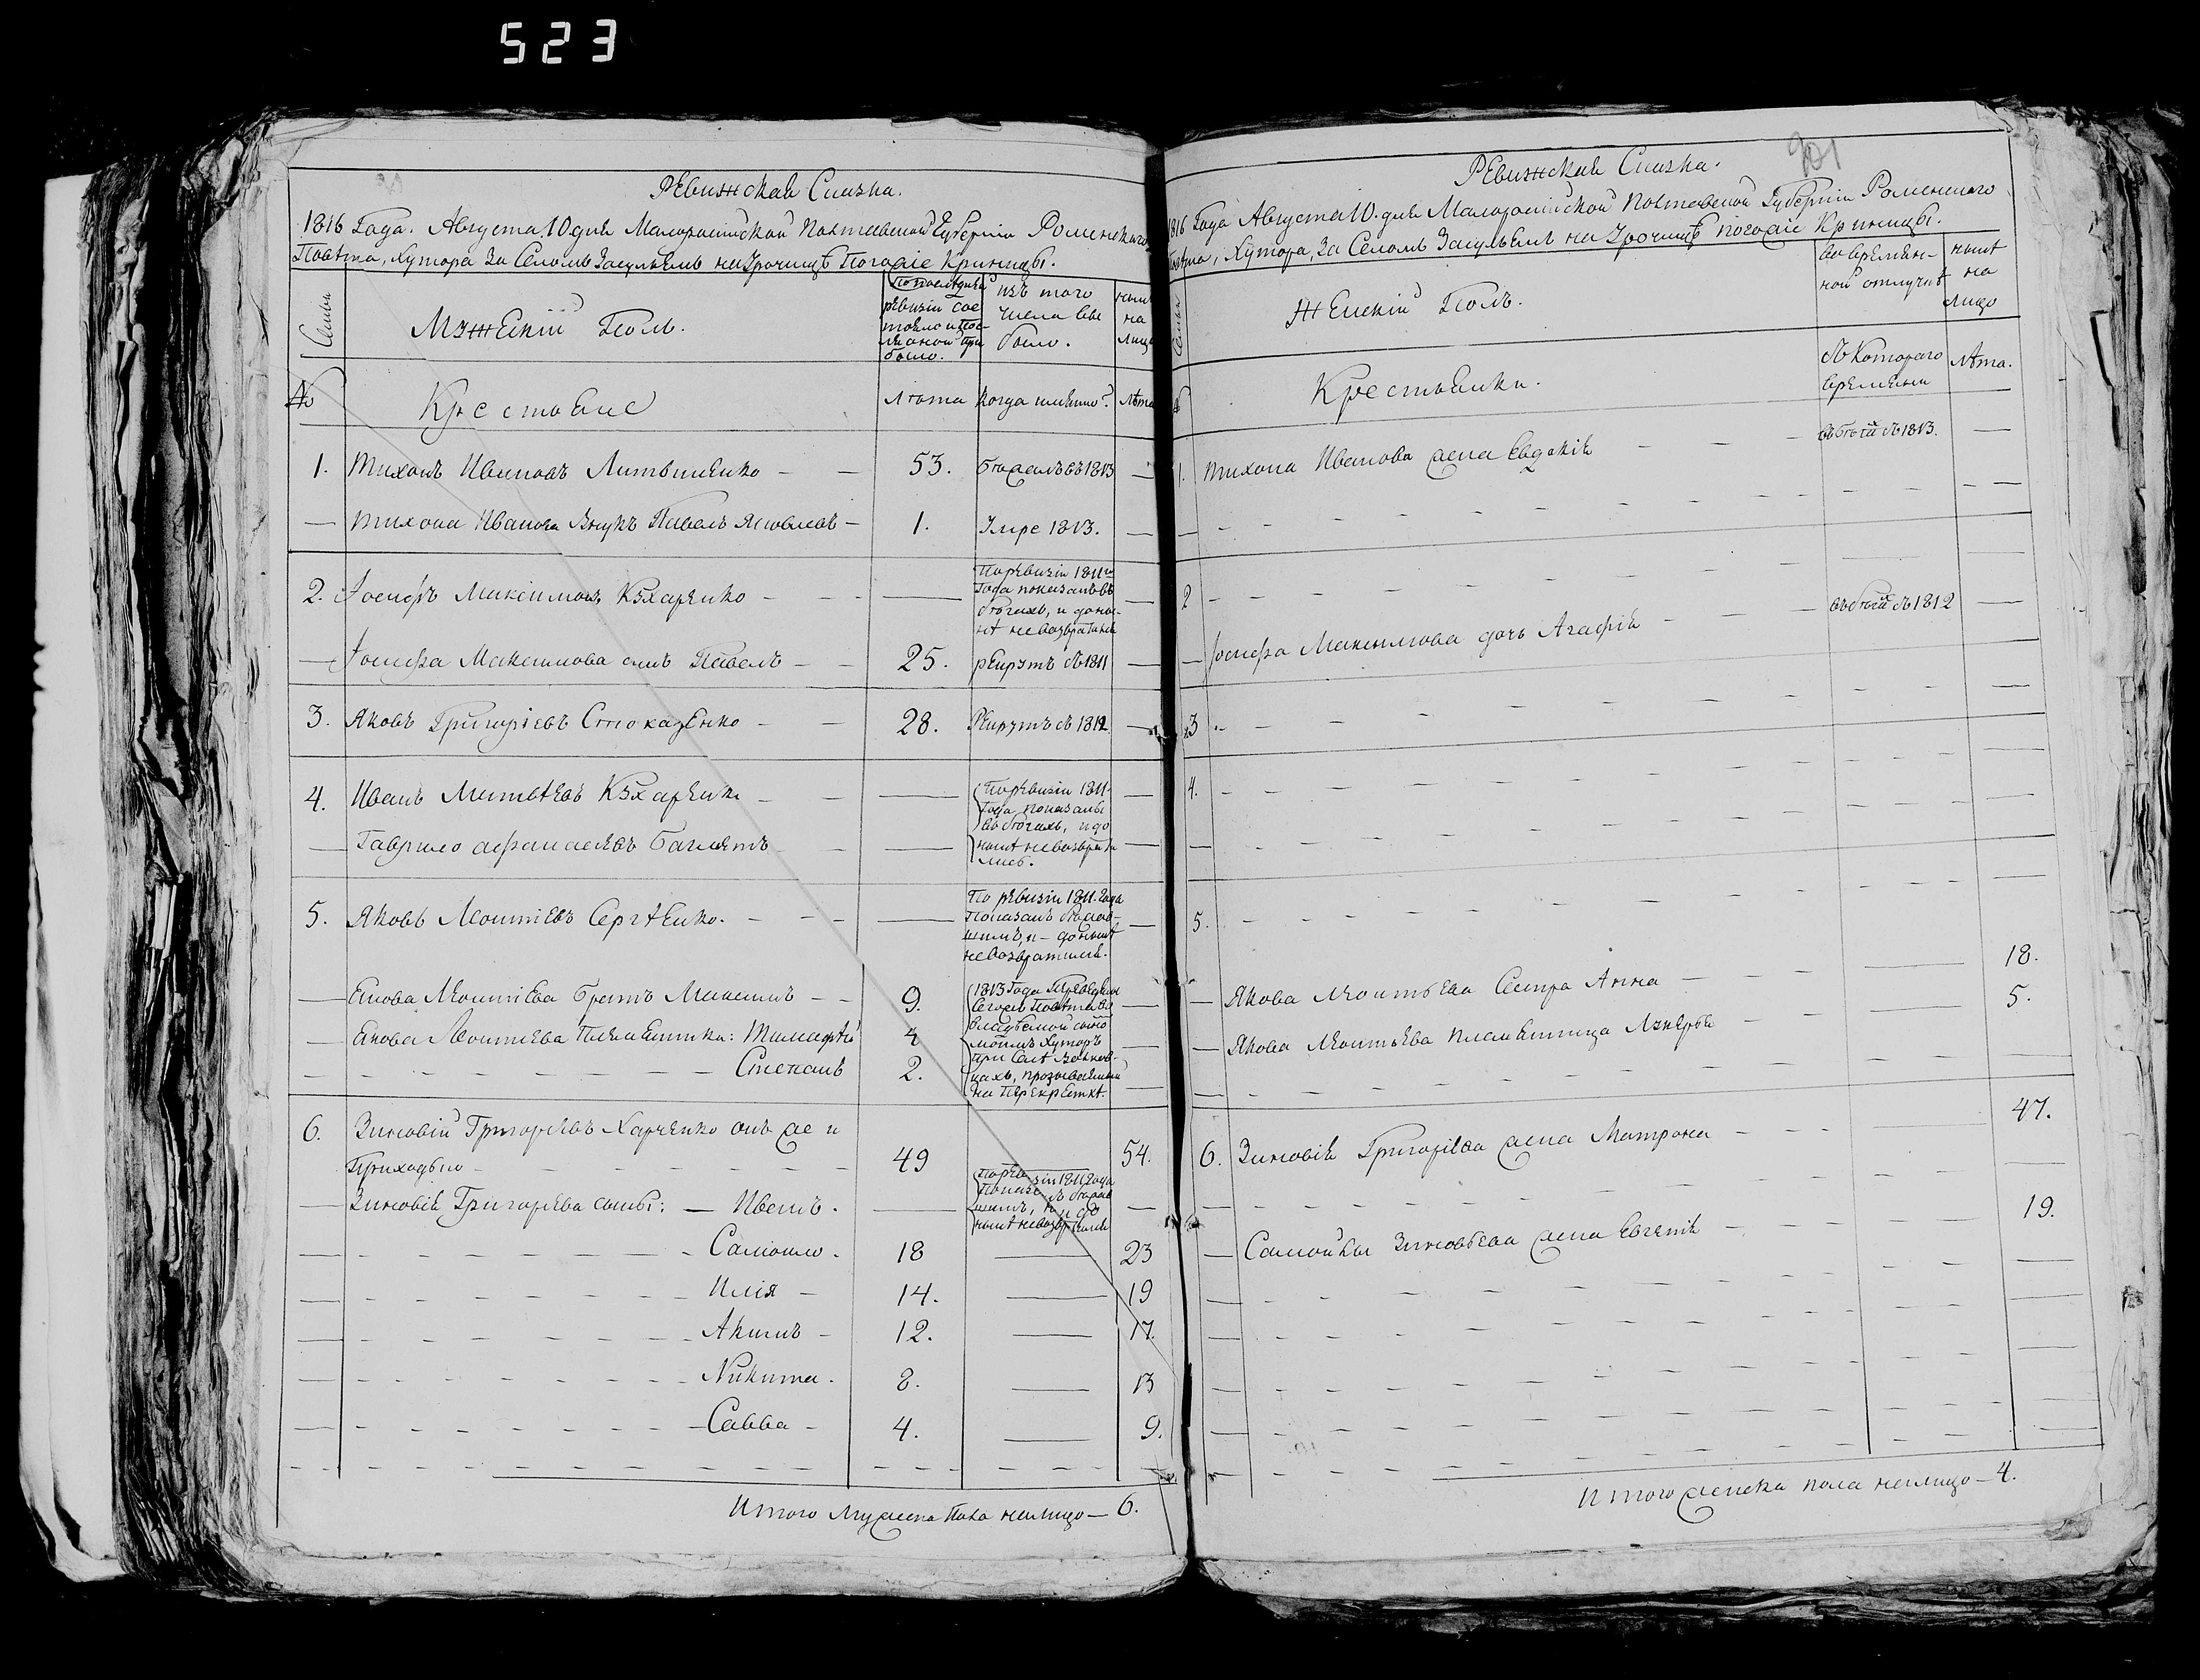 523
Ревижская Сказка.
1816 Года. Августа 10 дня Малоросiйской Полтавской Губернiи Роменского
Повѣта, Хутора За Селомъ Засульемъ на Урочищѣ Погожiе Криницы.
Семьи
Мужескiй Полъ.
По последней
ревизiи сос
тояло и пос-
ле оной при
было.
изъ того
числа вы
было.
нынѣ
на
лицо
№
Крестьяне
лѣта
когда имянно?
лѣта
1. Тихонъ Ивановъ Литвиненко — — 53. бѣжалъ въ 1813 —
— Тихона Иванова внукъ Павелъ Яковлевъ — 1. Умре 1813. —
2. Iосифъ Максимовъ Кухаренко — — —
По ревизiи 1811го
Года показанъ въ
бѣгахъ, и доны-
нѣ невозвратился
— Iосифа Максимова сынъ Павелъ — — 25. рекрутъ съ 1811 —
3. Яковъ Григорiевъ Стокозенко — — 28. Рекрутъ съ 1812 —
4. Иванъ Матвѣевъ Кухаренко — — —
— Гаврило Афанасiевъ Баглаютъ — — —
По ревизiи 1811
Года показаны
въ бѣгахъ, и до
нынѣ невозврати
лись.
5. Яковъ Леонтiевъ Сергѣенко. — — —
По ревизiи 1811 Года
Показанъ бѣжав-
шимъ, и — донынѣ
невозвратился.
— Якова Леонтiева братъ Максимъ — — 9. —
— Якова Леонтiева Племянники: Тимофѣй 4 —
— Степанъ 2. —
1813 Года Переведены
Сегожъ Повѣта во
Хуторъ
при Селѣ
прозываемый
на Перекресткѣ.
6. Зиновiй Григорьевъ Харченко онъ же и
Приходько — 49 — 54.
— Зиновiя Григорьева сыны: — Иванъ. — —
По ревизiи 1811 Года
Показанъ бѣжав
шимъ, и до
нынѣ невозвратился
— Самойло. 18 — 23
— Илiя — 14. — 19
— Акимъ — 12. — 17.
— Никита. 8. — 13
— Савва — 4. — 9.
Итого Мужеска Пола налицо — 6.
201
Ревижская Сказка.
1816 Года Августа 10. дня Малоросiйской Полтавской Губернiи Роменского
Повѣта, Хутора, За Селомъ Засульемъ на Урочищѣ Погожiе Криницы.
Семьи
Женскiй Полъ.
во времян-
ной отлучкѣ
нынѣ
на
лицо
№
Крестьянки.
съ Котораго
времяни
лѣта.
1. Тихона Иванова жена Евдокiя — — — въ бѣгѣ съ 1813. —
2
— Iосифа Максимова дочь Агафiя — — — въ бѣгѣ съ 1812 —
3
4.
5.
— Якова Леонтьева Сестра Анна — — 18.
— Якова Леонтьева племянница Лукерья — — 5.
6. Зиновiя Григорiева жена Матрона — — 47.
— Самойлы Зиновьева жена Евгенiя — — 19.
Итого женска пола налицо — 4.